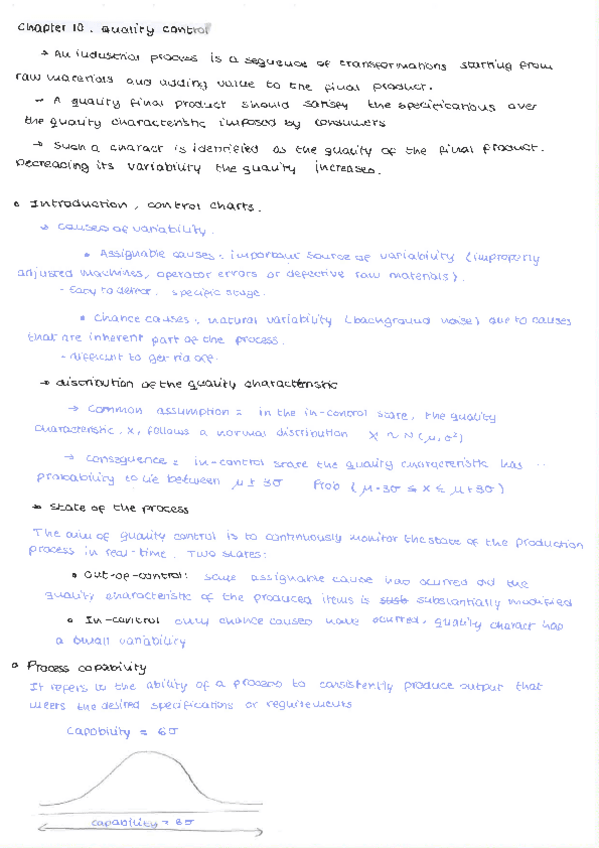 Chapter 10. Quality control
→ An industrial process is a sequence of transformations starting from
raw materials and adding value to the final product.
→ A quality final product should satisfy the specifications over
the quality characteristic imposed by consumers
→ Such a charact is identified as the quality of the final product.
Decreasing its variability the quality increases.
• Introduction, control charts.
→ Causes of variability.
• Assignable causes: important source of variability (improperly
adjusted machines, operator errors or defective raw materials).
- Easy to detect. specific stage.
• Chance causes: natural variability (background noise) due to causes
that are inherent part of the process.
- difficult to get rid off.
→ distribution of the quality characteristic
→ Common assumption: in the in-control state, the quality
characteristic, X, follows a normal distribution X ~ N(μ, σ²)
→ Consequence: in-control state the quality characteristic has ..
probability to lie between μ ± 3σ Prob (μ-3σ ≤ X ≤ μ+3σ)
→ State of the process
The aim of quality control is to continuously monitor the state of the production
process in real-time. Two states:
• Out-of-control: some assignable cause has ocurred and the
quality characteristic of the produced items is substantially modified
• In-control only chance causes have ocurred, quality charact has
a small variability
• Process capability
It refers to the ability of a process to consistently produce output that
meets the desired specifications or requirements
Capability = 6σ
capability = 6σ